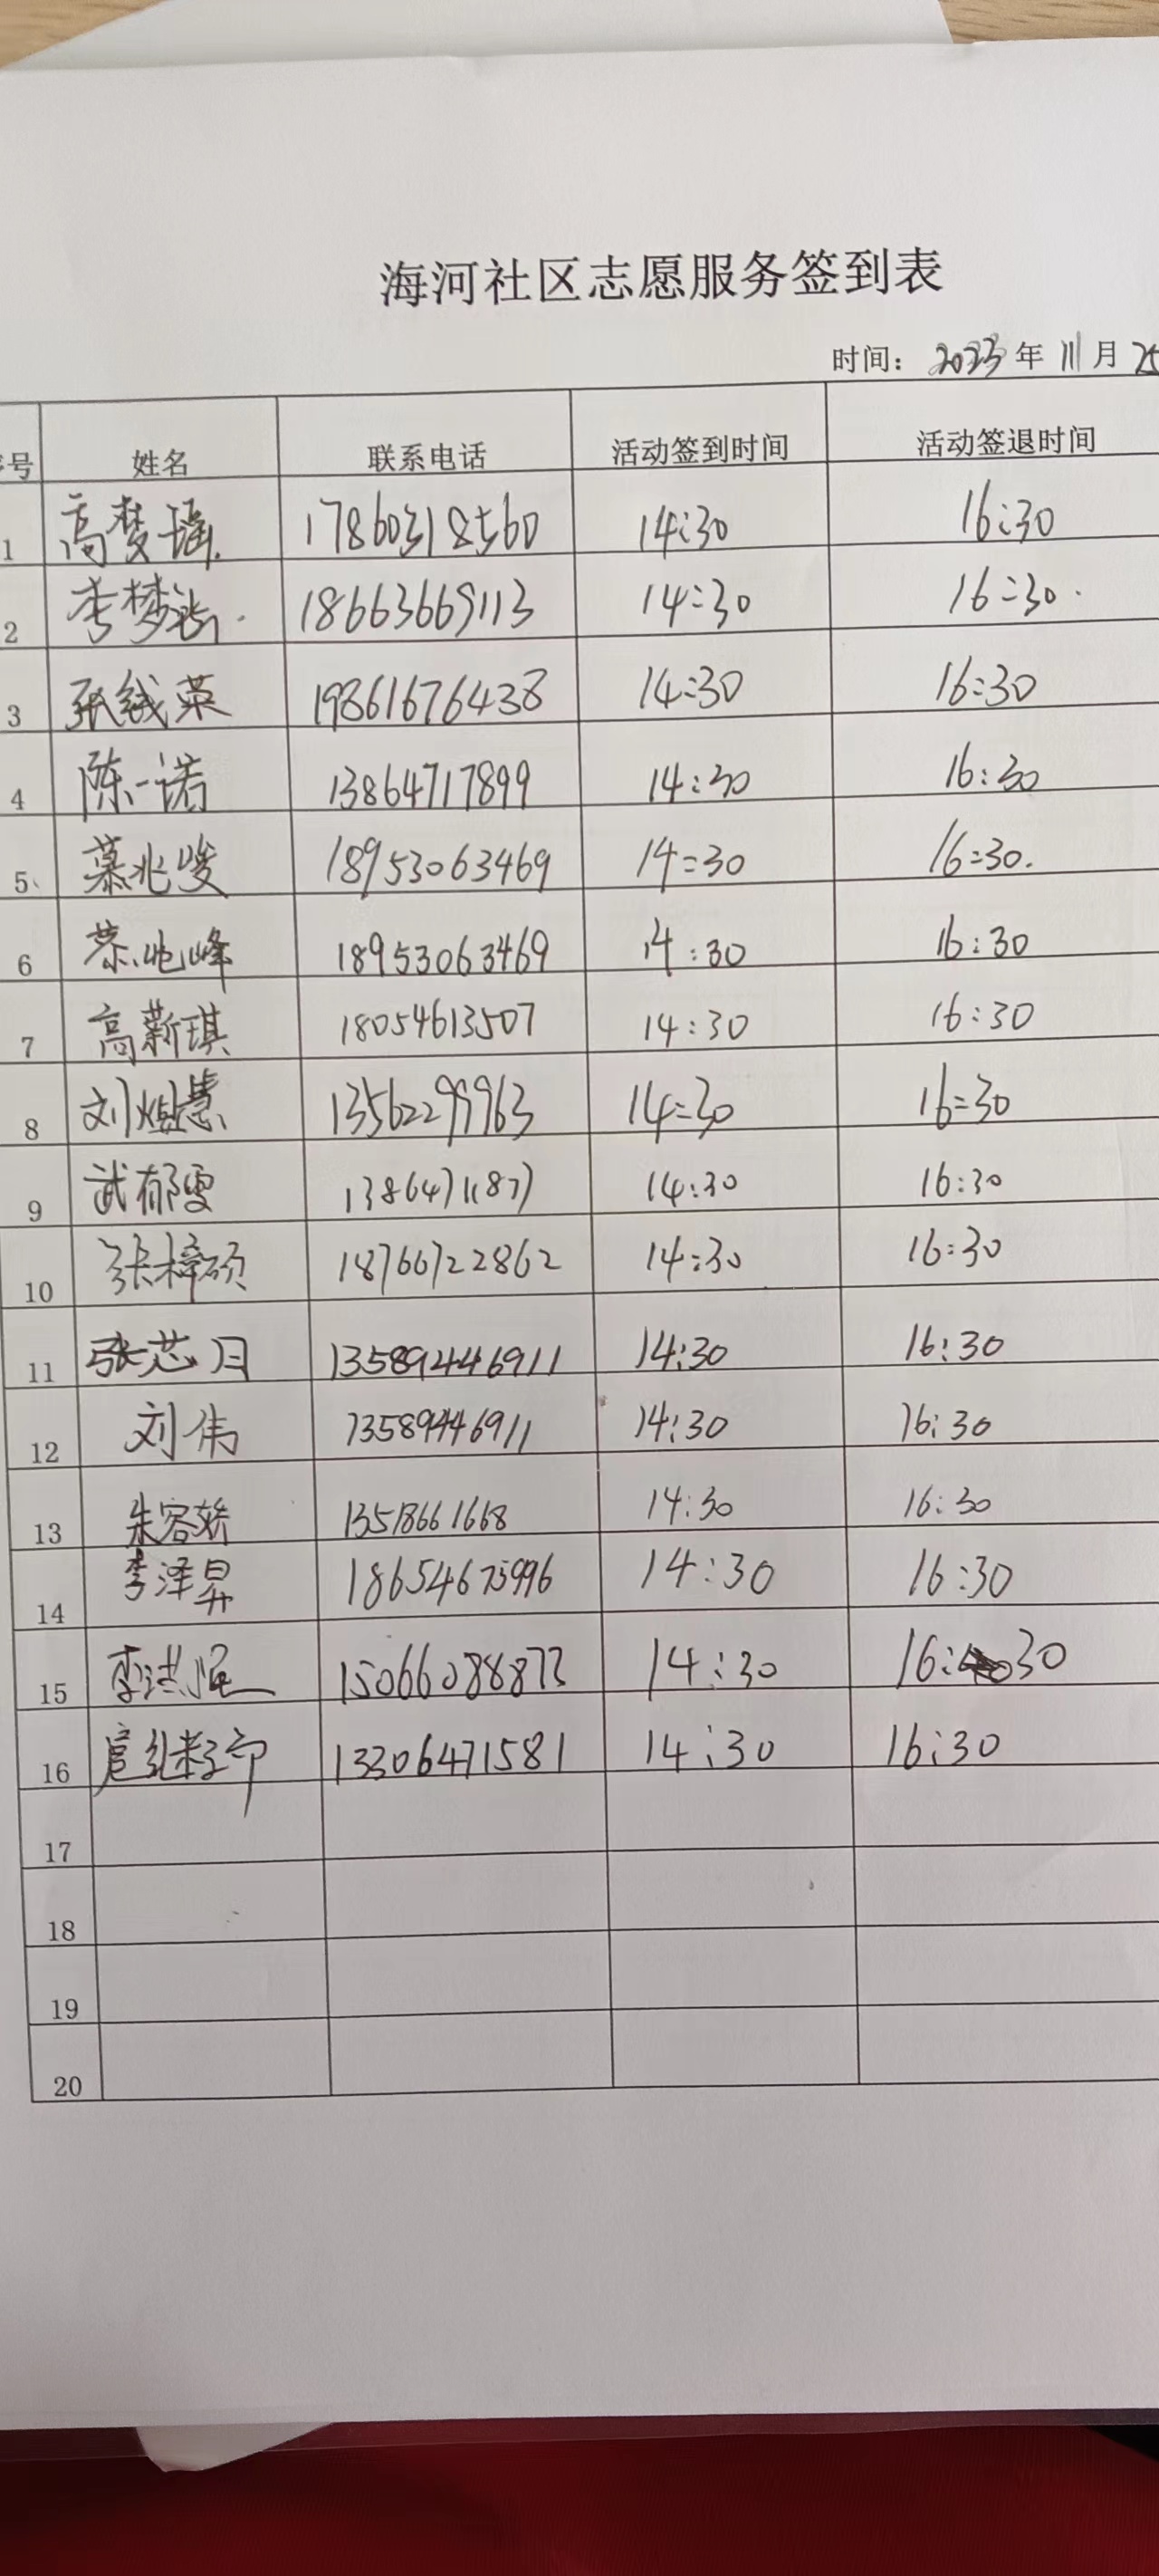 海河社区志愿服务签到表
时间: 2023 年 11 月 25
序号 姓名 联系电话 活动签到时间 活动签退时间
1 高梦瑶 17860318560 14:30 16:30
2 李梦 18663669113 14:30 16:30
3 张绒荣 19861676438 14:30 16:30
4 陈一诺 13864717899 14:30 16:30
5 慕兆峻 18953063469 14:30 16:30
6 慕兆峰 18953063469 14:30 16:30
7 高新琪 18054613507 14:30 16:30
8 刘慧 13562299963 14:30 16:30
9 武郁雯 13864711877 14:30 16:30
10 张梓硕 18766722862 14:30 16:30
11 张芯月 13589446911 14:30 16:30
12 刘伟 13589446911 14:30 16:30
13 朱容娇 13518661668 14:30 16:30
14 李泽昇 18654675996 14:30 16:30
15 李洪 15066088873 14:30 16:30
16 扈继 13306471581 14:30 16:30
17
18
19
20